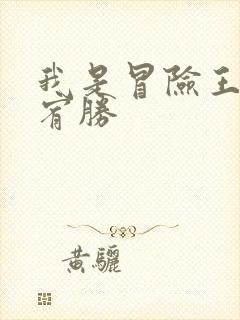 我是冒險王
宥勝
黃驪